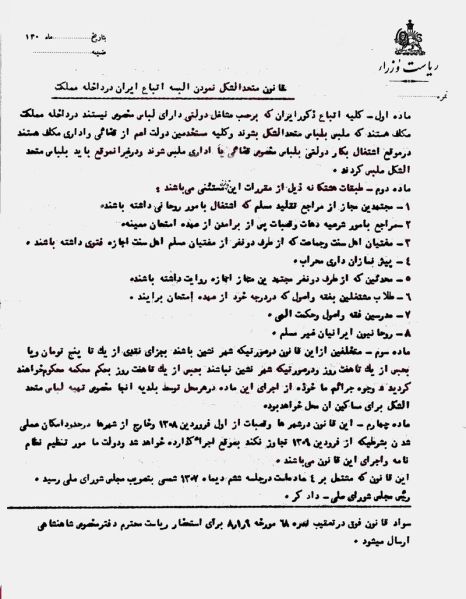 ریاست وزراء
بتاریخ ... ماه ... ۱۳۰
ضمیمه
نمره
قانون متحدالشکل نمودن البسه اتباع ایران در داخله مملکت
ماده اول - کلیه اتباع ذکور ایران که برحسب مشاغل دولتی دارای لباس مخصوص نیستند در داخله مملکت
مکلف هستند که ملبس بلباس متحدالشکل بشوند و کلیه مستخدمین دولت اعم از قضائی و اداری مکلف هستند
در موقع اشتغال بکار دولتی بلباس مخصوص قضائی یا اداری ملبس شوند و در غیر آنموقع باید بلباس متحد
الشکل ملبس گردند ۰
ماده دوم - طبقات هشتگانه ذیل از مقررات این مستثنی میباشند :
۱ - مجتهدین مجاز از مراجع تقلید مسلم که اشتغال بامور روحانی داشته باشند
۲ - مراجع بامور شرعیه دهات و قصبات پس از برآمدن از عهده امتحان معینه
۳ - مفتیان اهل سنت و جماعت که از طرف دو نفر از مفتیان مسلم اهل سنت اجازه فتوی داشته باشند ۰
۴ - پیش نمازان دارای محراب ۰
۵ - محدثین که از طرف دو نفر مجتهدین مجاز اجازه روایت داشته باشند
۶ - طلاب مشتغلین بفقه و اصول که در درجه خود از عهده امتحان برآیند ۰
۷ - مدرسین فقه و اصول و حکمت الهی ۰
۸ - روحانیون ایرانیان غیر مسلم ۰
ماده سوم - متخلفین از این قانون در صورتیکه شهر نشین باشند بجزای نقدی از یک تا پنج تومان و یا
بحبس از یک تا هفت روز و در صورتیکه شهر نشین نباشند بحبس از یک تا هفت روز بحکم محکمه محکوم خواهند
گردید ۰ وجوه جرائم ماخوذه از اجرای این ماده در هر محل توسط بلدیه آنجا مخصوص تهیه لباس متحد
الشکل برای مساکین آن محل خواهد بود
ماده چهارم - این قانون در شهرها و قصبات از اول فروردین ۱۳۰۸ و خارج از شهرها در حدود امکان عملی
شدن بشرطیکه از فروردین ۱۳۰۹ تجاوز نکند بموقع اجرا گذارده خواهد شد و دولت مامور تنظیم نظام
نامه و اجرای این قانون میباشند ۰
این قانون که مشتمل بر ۴ ماده است در جلسه ششم دیماه ۱۳۰۷ شمسی بتصویب مجلس شورای ملی رسید ۰
رئیس مجلس شورای ملی - دادگر ۰
سواد قانون فوق در تعقیب نمره ۶۸ مورخه ۸ر۱ر۹ برای استحضار ریاست محترم دفتر مخصوص شاهنشاهی
ارسال میشود ۰